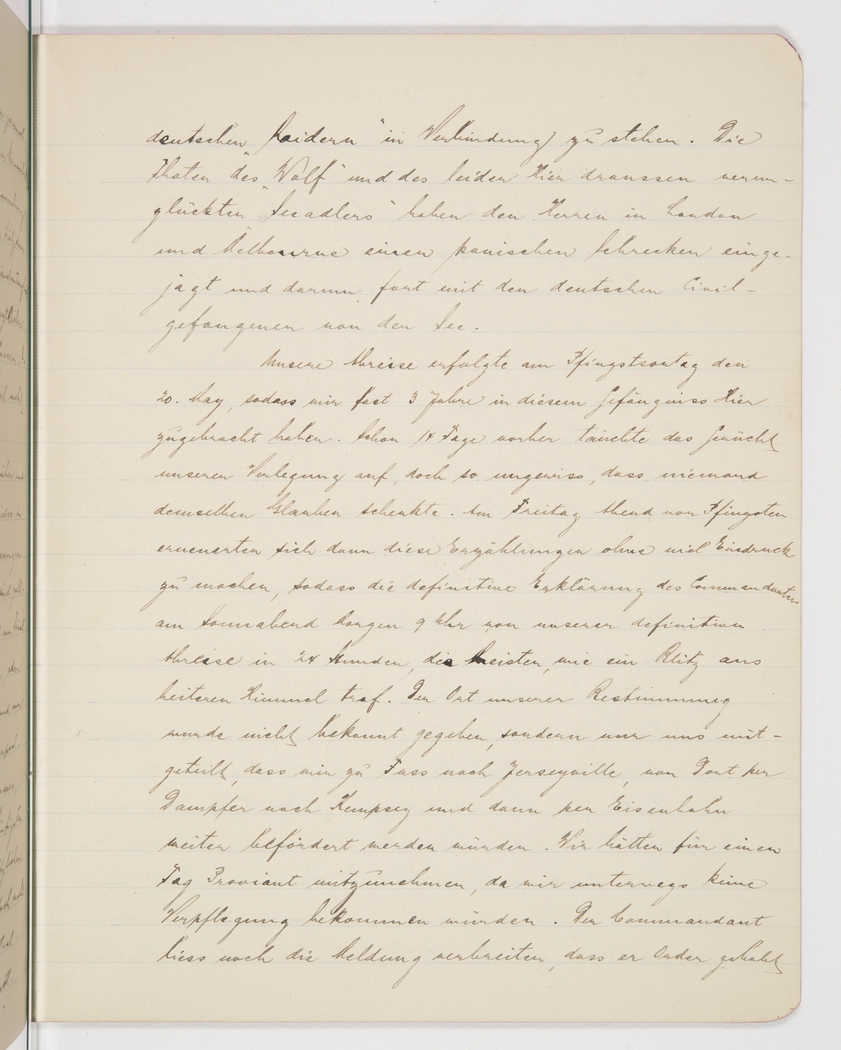 deutschen Raidern" in Verbindung zu stehen. Die
Thaten des "Wolf" und des leider hier draussen verun-
glückten "Seeadlers" haben den Herren in London
und Melbourne einen panischen Schrecken einge-
jagt und darum fort mit den deutschen Civil-
gefangenen von der See.
Unsere Abreise erfolgte am Pfingstsontag den
20. May, sodass wir fast 3 Jahre in diesem Gefängniss hier
zugebracht haben. Schon 14 Tage vorher tauchte das Gerücht
unserer Verlegung auf, doch so ungewiss, dass niemand
demselben Glauben schenkte. Am Freitag Abend vor Pfingsten
erneuerten sich dann diese Erzählungen ohne viel Eindruck
zu machen, sodass die definitive Erklärung des Commandanten
am Sonnabend Morgen 9 Uhr von unserer definitiven
Abreise in 24 Stunden, die Meisten, wie ein Blitz aus
heiteren Himmel traf. Der Ort unserer Bestimmung
wurde nicht bekannt gegeben, sondern nur uns mit-
geteilt, dass wir zu Fuss nach Jerseyville, von Dort per
Dampfer nach Kempsey und dann per Eisenbahn
weiter befördert werden würden. Wir hätten für einen
Tag Proviant mitzunehmen, da wir unterwegs keine
Verpflegung bekommen würden. Der Commandant
liess noch die Meldung verbreiten, dass er Order gehabt